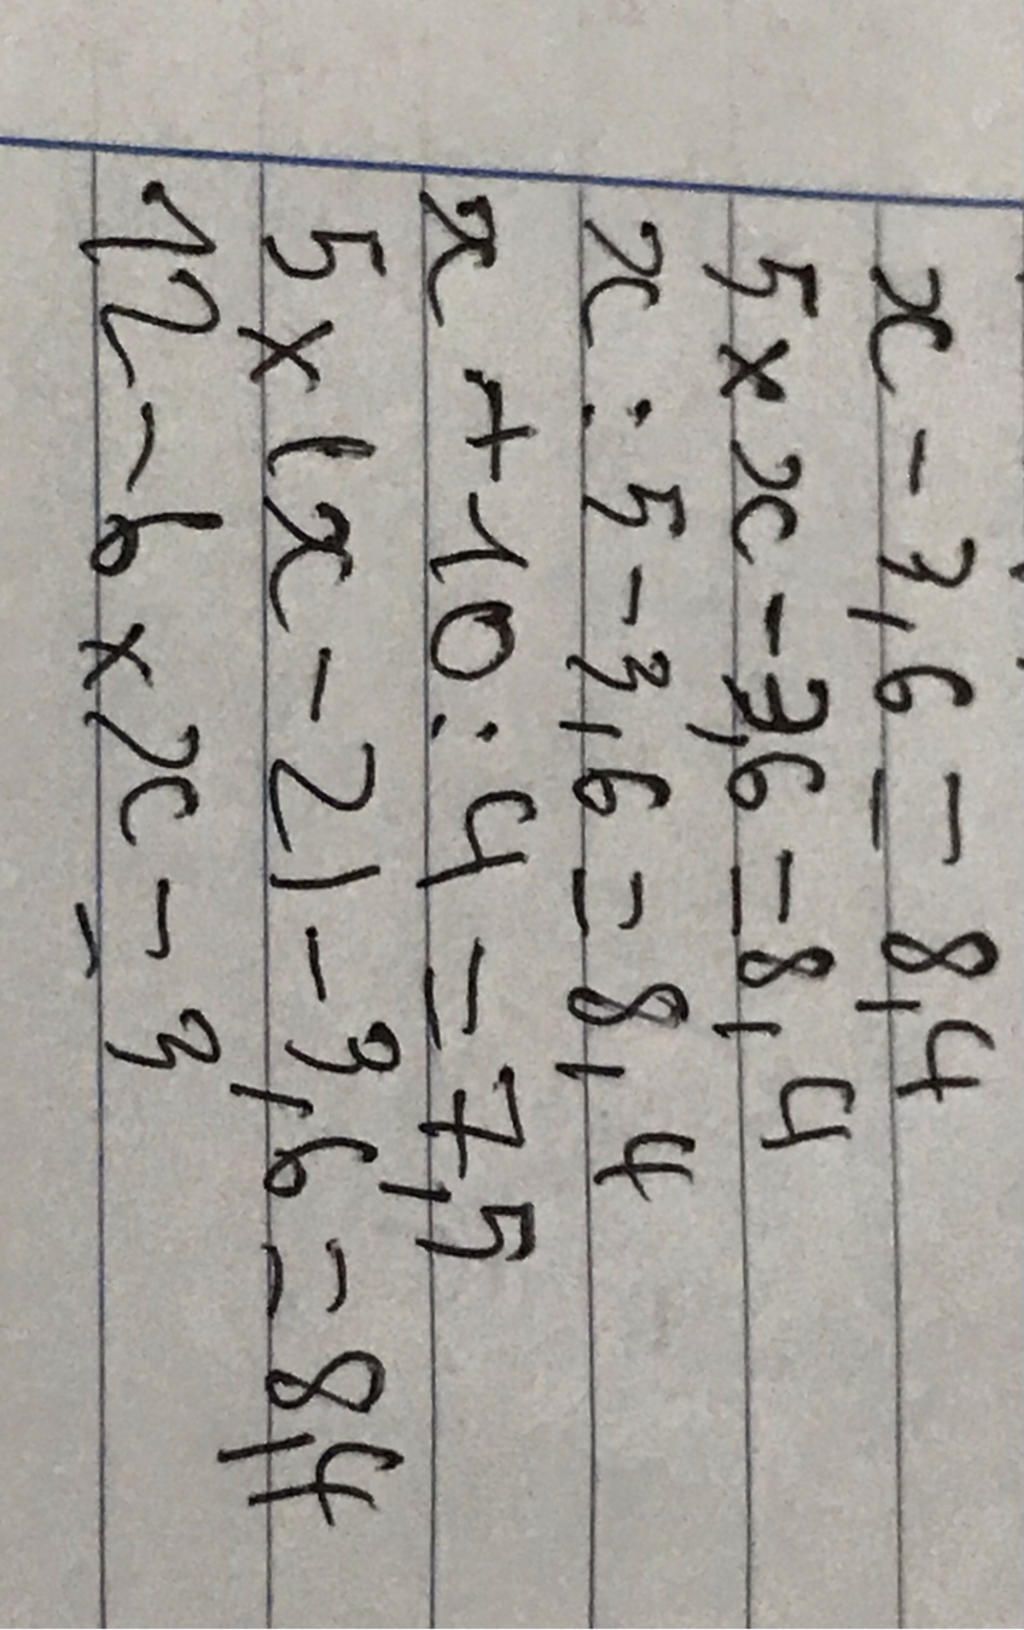 x - 3,6 = 8,4
5 × x - 3,6 = 8,4
x : 5 - 3,6 = 8,4
x + 10 : 4 = 7,5
5 × (x - 2) - 3,6 = 8,4
12 - 6 × x = 3